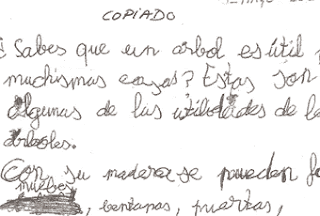 COPIADO
¿Sabes que un arbol es útil
muchismas cosas? Estas son
algunas de las utilidades de lo
árboles.
Con su madera se pueden fa
muebes
, bentanas, puertas,